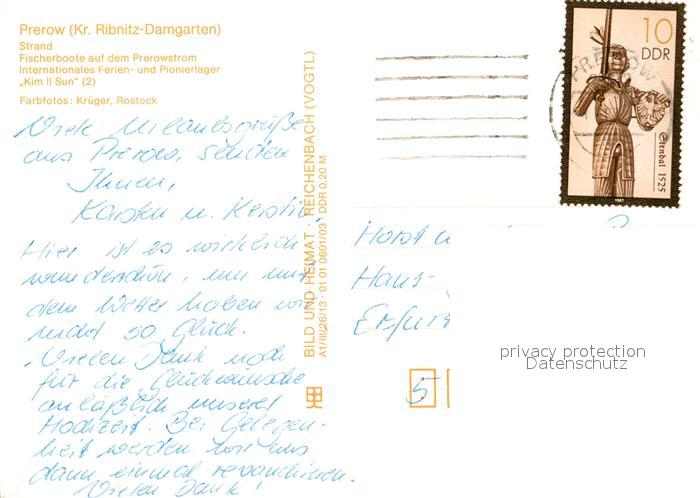 Prerow (Kr. Ribnitz-Damgarten)
Strand
Fischerboote auf dem Prerowstrom
Internationales Ferien- und Pionierlager
„Kim Il Sun“ (2)
Farbfotos: Krüger, Rostock
Viele Urlaubsgrüße
aus Prerow, senden
Ihnen,
Karsten u. Kerstin.
Hier ist es wirklich
wunderschön, nur mit
dem Wetter haben wir
nicht so Glück.
Vielen Dank noch
für die Glückwünsche
anläßlich unserer
Hochzeit. Bei Gelegen-
heit werden wir uns
dann einmal revanchieren.
Vielen Dank!
BILD UND HEIMAT · REICHENBACH (VOGTL)
A1/III/26/13 · 01 01 0601/03 · DDR 0,20 M
PREROW
10
DDR
Stendal 1525
1987
Horst u
Hans-
Erfurt
5
privacy protection
Datenschutz